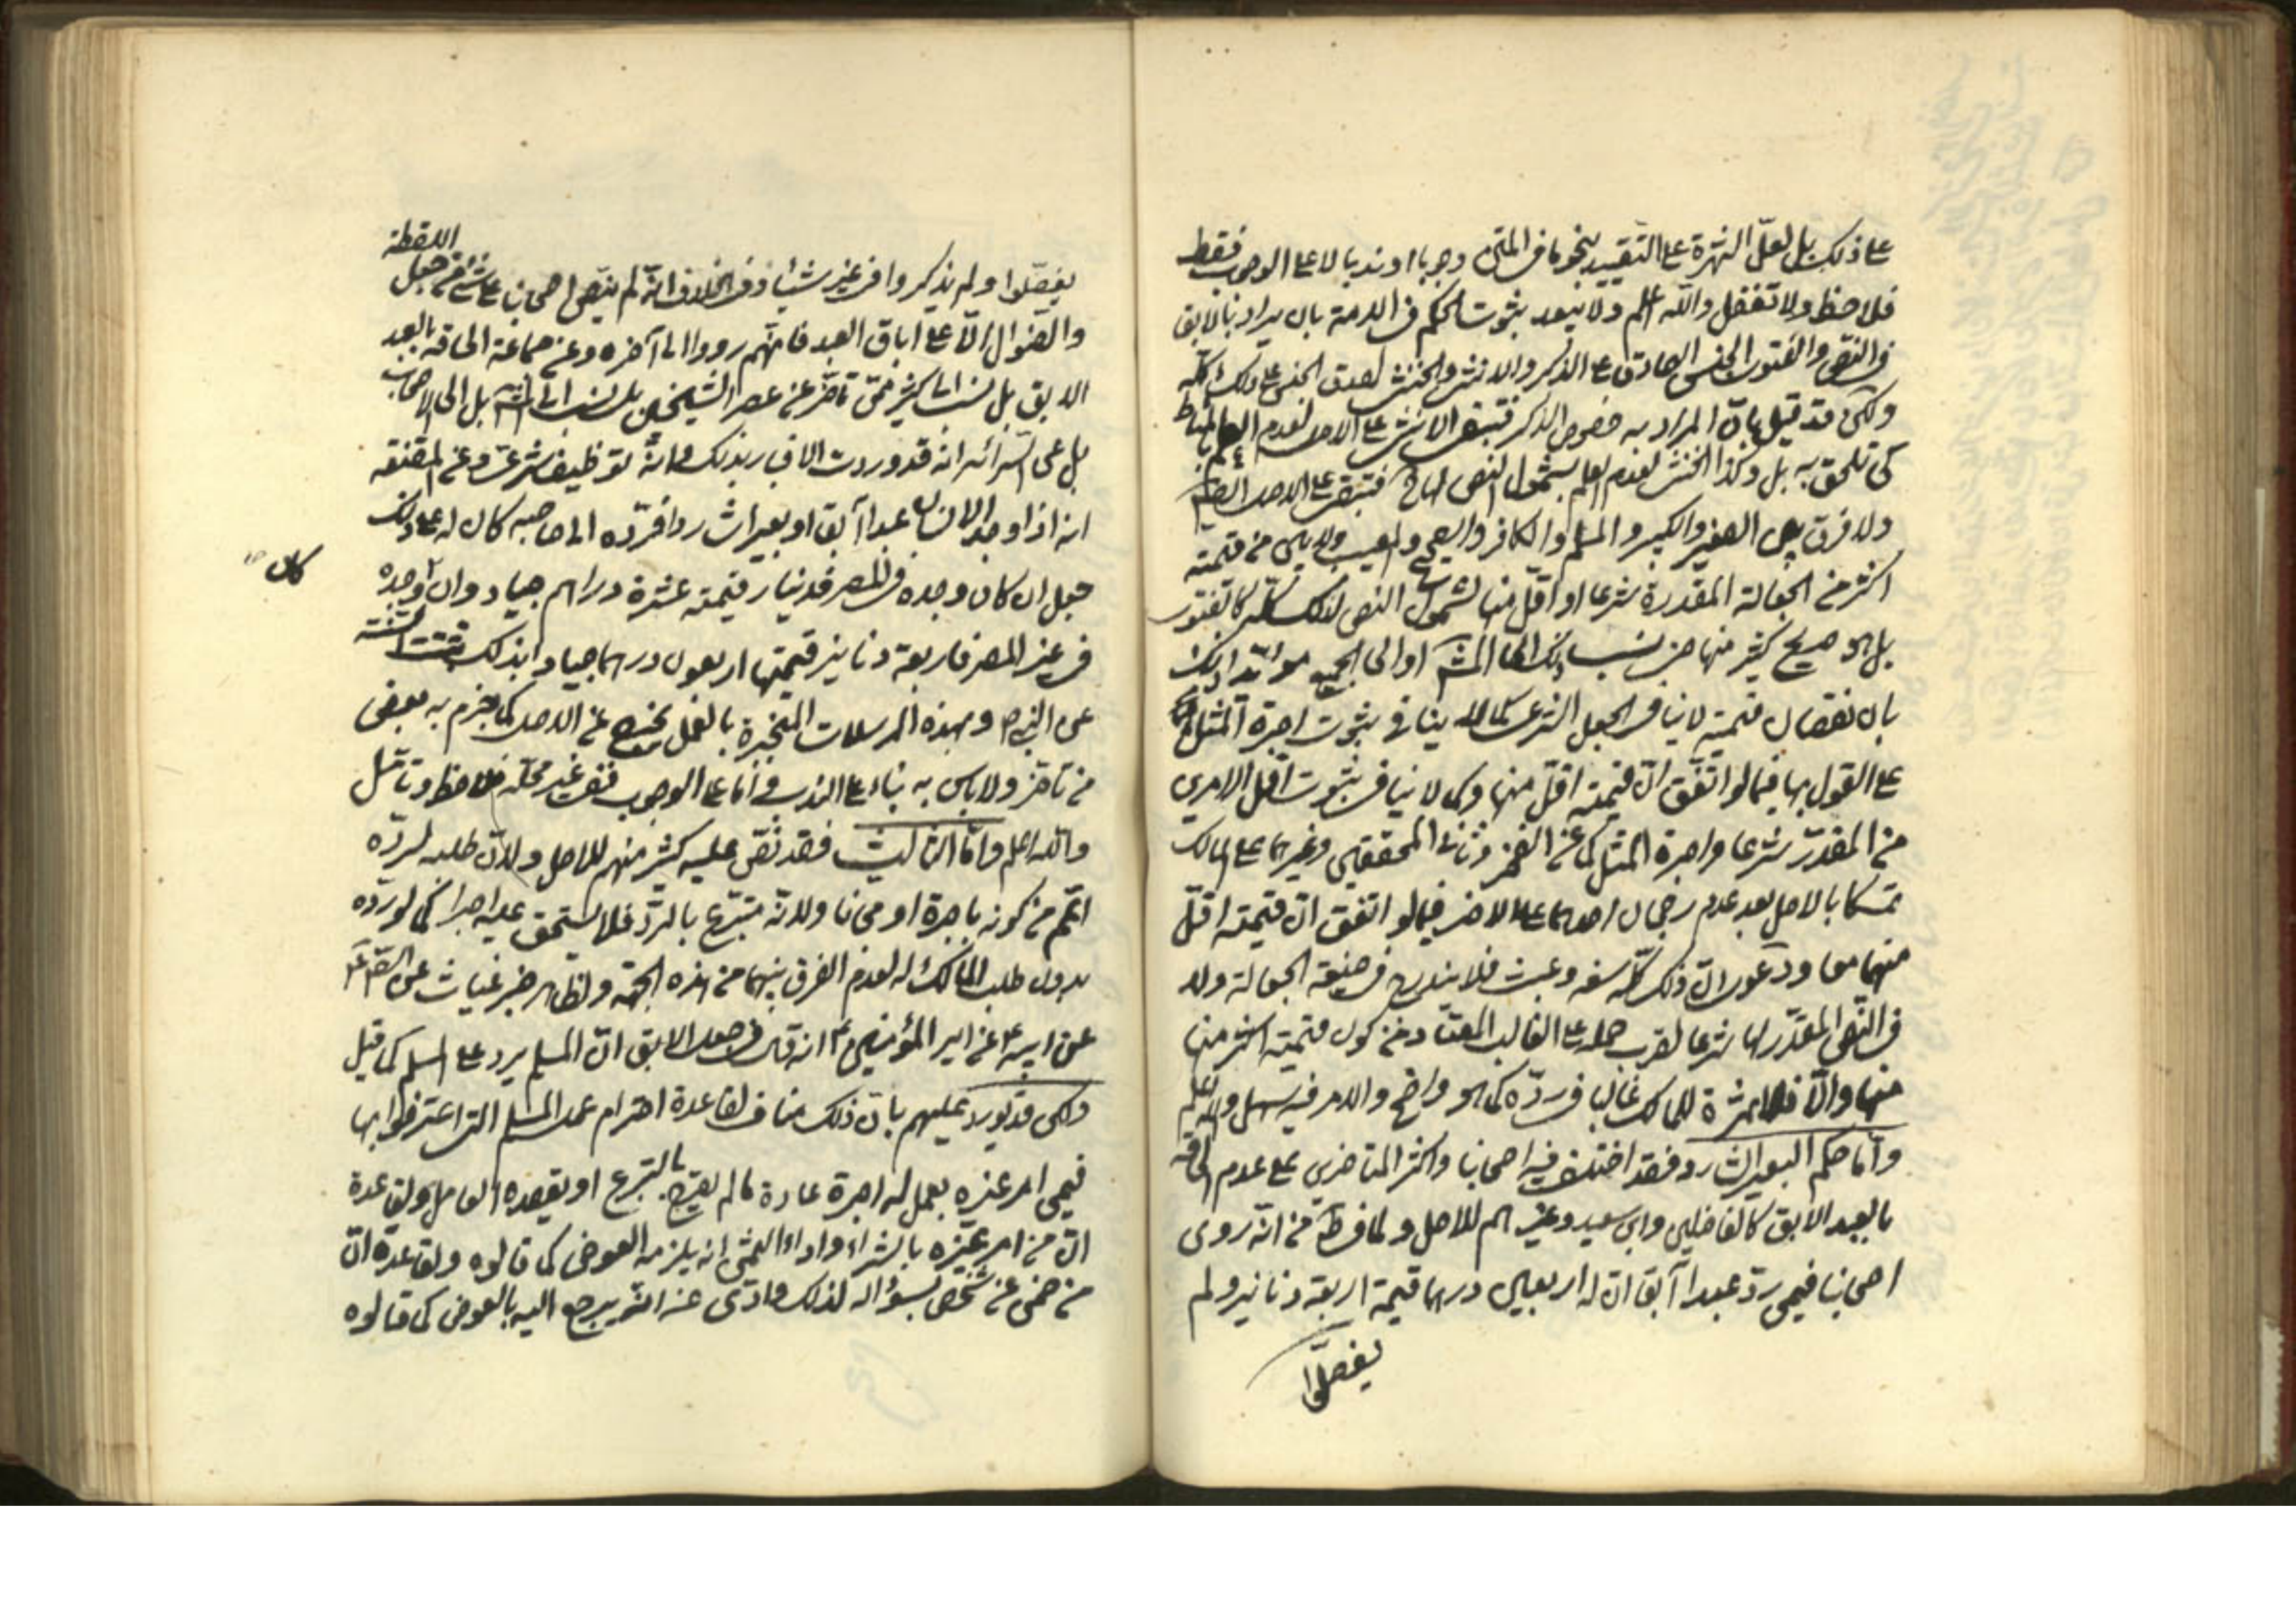 على ذلك بل لعلّ الشهرة على التقييد بنحو ما في المتن وجوبا او ندبا لا على الوجوب فقط
فلاحظ ولا تغفل والله اعلم ولا يبعد ثبوت الحكم في الامة بان يراد بالابق
في النص والفتوى الجنس الصادق على الذكر والانثى والخنثى لصدق الجنس على ذلك كله
ولكن قد قيل بان المراد به خصوص الذكر فتبقى الانثى على الاصل لعدم العلم بالمناط
كي تلحق به بل وكذا الخنثى لعدم العلم بشمول النص لها فتبقى على الاصل
ولا فرق بين الصغير والكبير والمسلم والكافر والصحيح والمعيب ولا بين من قيمته
اكثر من الجعالة المقدرة شرعا او اقل منها لشمول النص لذلك كله كالفتوى
بل هو صريح كثير منها حين نسب ذلك الى او الى
بان نقصان قيمته لا ينافي الجعل الشرعي كما لا ينافي ثبوت اجرة المثل
على القول بها فيما لو اتفق ان قيمته اقل منها وكما لا ينافي ثبوت اقل الامرين
من المقدر شرعا واجرة المثل كما عن الفخر وثاني المحققين وغيرهما على المالك
تمسكا بالاصل بعد عدم رجحان احدهما على الاخر فيما لو اتفق ان قيمته اقل
منهما معا ودعوى ان ذلك كله سفه وعبث فلا يندرج في صيغة الجعالة ولا
في النص المقدر لها شرعا لقرب حمله على الغالب المعتاد من كون قيمته اكثر منها
منها والا فلا ثمرة للمالك غالبا في رده كما هو واضح والامر فيه سهل والله العالم
واما حكم البعير الشارد فقد اختلف فيه اصحابنا واكثر المتاخرين على عدم الحاقه
بالعبد الابق كالفاضلين وابي سعيد وغيرهم للاصل ولما في من انه روى
اصحابنا فيمن رد عبدا آبقا ان له اربعين درهما قيمة اربعة دنانير ولم
يفصلوا
اللقطة
يفصلوا ولم يذكروا في غيره شيئا وفي الخلاف انه لم ينص اصحابنا على شيء من جعل
والضوال الا على اباق العبد فانهم رووا الى آخره وعن جماعة الحاقه بالعبد
الابق بل نسب الى كثير ممن تاخر عن عصر الشيخين بل نسب الى بل الى الاصحاب
بل عن السرائر انه قد وردت الاخبار بذلك وانه توظيف شرعي وعن المقنعة
انه اذا وجد الانسان عبدا آبقا او بعيرا شاردا فرده الى صاحبه كان له على ذلك
جعل ان كان وجده في المصر فدينار قيمته عشرة دراهم جياد وان كان وجده
في غير المصر فاربعة دنانير قيمتها اربعون درهما جياد بذلك ثبتت السنة
عن النبي ص وبهذه المرسلات المنجبرة بالعمل يخرج عن الاصل كما جزم به بعض
من تاخر ولا باس به بناء على الندب واما على الوجوب ففي غير محله فلاحظ وتامل
والله اعلم واما الثالث فقد نص عليه كثير منهم للاصل ولان طلبه لرده
اعم من كونه باجرة او مجانا ولانه متبرع بالرد فلا يستحق عليه اجرا كما لو رده
بدون طلب المالك له لعدم الفرق بينهما من هذه الجهة ولظاهر خبر غياث عن الصادق ع
عن ابيه ع عن امير المؤمنين ع انه قال في جعل الابق ان المسلم يرد على المسلم كما قيل
ولكن قد يورد عليهم بان ذلك مناف لقاعدة احترام عمل المسلم التي اعترفوا بها
فيمن امر غيره بعمل له اجرة عادة ما لم يصرح بالتبرع او يقصده العامل ولقاعدة
ان من امر غيره بالشراء واداء الثمن انه يلزمه العوض كما قالوه ولقاعدة ان
من ضمن عن شخص بسؤاله لذلك وادى عنه انه يرجع اليه بالعوض كما قالوه
كان